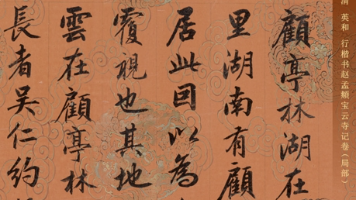 清 英和 行楷书赵孟頫宝云寺记卷（局部）
顧亭林湖在
里湖南有顧
居此因以為
覆視也其地
雲在顧亭林
長者吴仁約